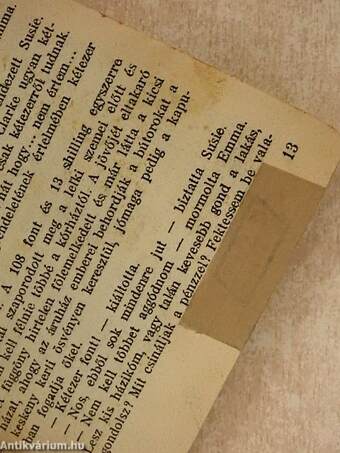 mma.
ndezett Susie.
Clarke ugyan két-
sak kétezer-ről tudnak.
hát hogy... nem értem...
ndeletének értelmében kétezer
A 108 font és 13 shilling egyszerre
szaporodott meg a lelki szemei előtt és
kell félnie többé a kórháztól. A jövőjét eltakaró
függöny hirtelen fölemelkedett és már látta a kicsi
házat ahogy az áruház emberei behordják a bútorokat a
keskeny kerti ösvényen keresztül, jómaga pedig a kapu-
an fogadja őket.
— Kétezer font! — kiáltotta.
— Nos, ebből sok mindenre jut — biztatta Susie.
— Nem kell többet aggódnom — mormolta Emma.
Lesz kis házikóm, vagy talán kevesebb gond a lakás,
gondolsz? Mit csináljak a pénzzel? Fektessem be vala-
13
Antikvárium.hu